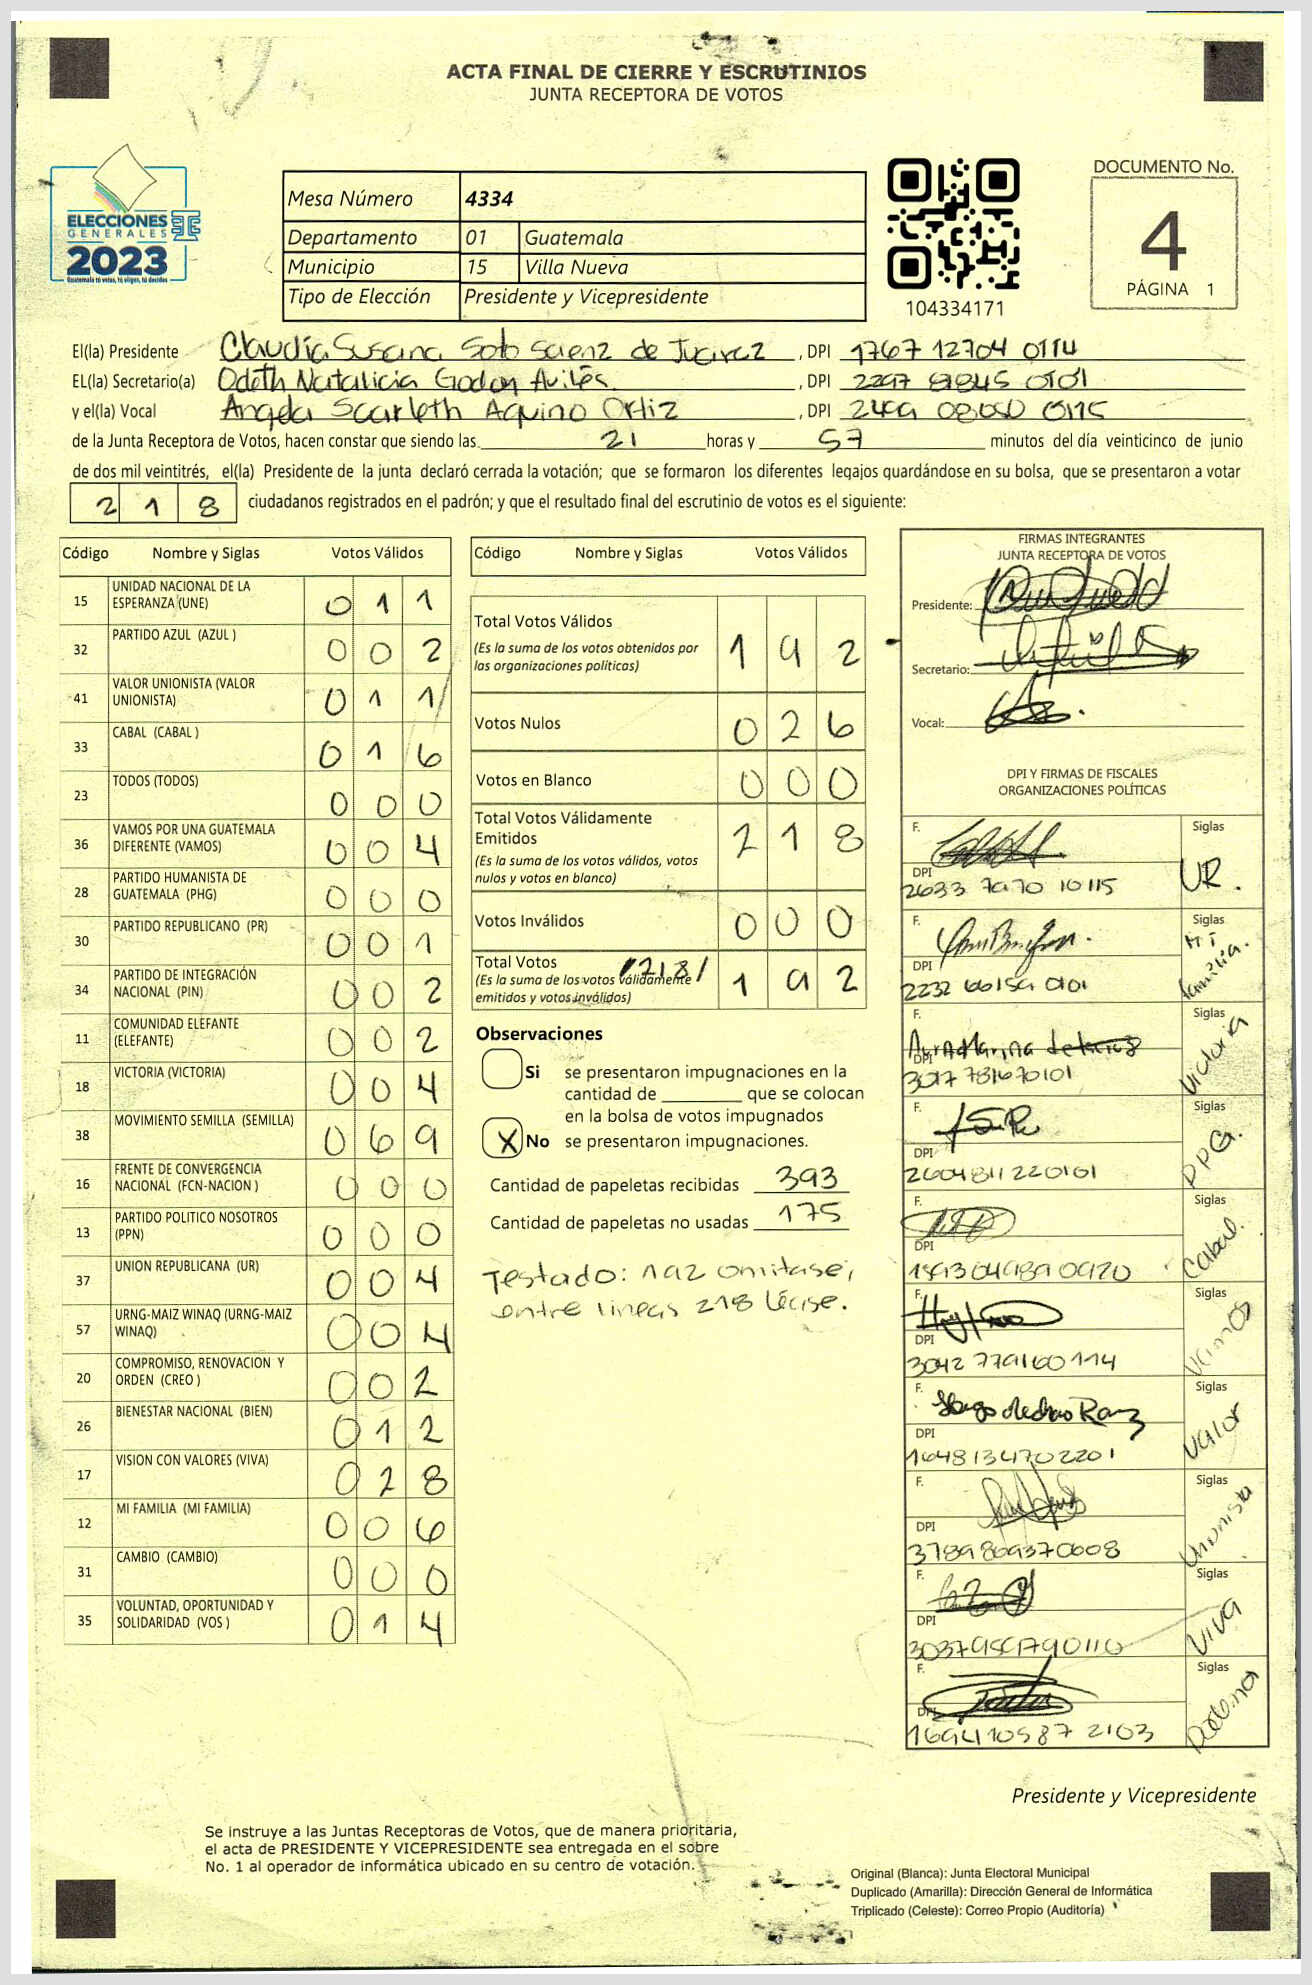 ACTA FINAL DE CIERRE Y ESCRUTINIOS
JUNTA RECEPTORA DE VOTOS
ELECCIONES
GENERALES
2023
Guatemala tú votas, tú eliges, tú decides
Mesa Número 4334
Departamento 01 Guatemala
Municipio 15 Villa Nueva
Tipo de Elección Presidente y Vicepresidente
104334171
DOCUMENTO No.
4
PÁGINA 1
El(la) Presidente Claudia Susana Soto Saenz de Juarez , DPI 1767 12704 0114
EL(la) Secretario(a) Odeth Natalicia Godoy Avilés , DPI 2297 81845 0101
y el(la) Vocal Angela Scarleth Aquino Ortiz , DPI 2499 08080 0115
de la Junta Receptora de Votos, hacen constar que siendo las 21 horas y 57 minutos del día veinticinco de junio
de dos mil veintitrés, el(la) Presidente de la junta declaró cerrada la votación; que se formaron los diferentes legajos guardándose en su bolsa, que se presentaron a votar
218 ciudadanos registrados en el padrón; y que el resultado final del escrutinio de votos es el siguiente:
Código Nombre y Siglas Votos Válidos
15 UNIDAD NACIONAL DE LA ESPERANZA (UNE) 011
32 PARTIDO AZUL (AZUL ) 002
41 VALOR UNIONISTA (VALOR UNIONISTA) 011
33 CABAL (CABAL ) 016
23 TODOS (TODOS) 000
36 VAMOS POR UNA GUATEMALA DIFERENTE (VAMOS) 004
28 PARTIDO HUMANISTA DE GUATEMALA (PHG) 000
30 PARTIDO REPUBLICANO (PR) 001
34 PARTIDO DE INTEGRACIÓN NACIONAL (PIN) 002
11 COMUNIDAD ELEFANTE (ELEFANTE) 002
18 VICTORIA (VICTORIA) 004
38 MOVIMIENTO SEMILLA (SEMILLA) 069
16 FRENTE DE CONVERGENCIA NACIONAL (FCN-NACION ) 000
13 PARTIDO POLITICO NOSOTROS (PPN) 000
37 UNION REPUBLICANA (UR) 004
57 URNG-MAIZ WINAQ (URNG-MAIZ WINAQ) 004
20 COMPROMISO, RENOVACION Y ORDEN (CREO ) 002
26 BIENESTAR NACIONAL (BIEN) 012
17 VISION CON VALORES (VIVA) 028
12 MI FAMILIA (MI FAMILIA) 006
31 CAMBIO (CAMBIO) 000
35 VOLUNTAD, OPORTUNIDAD Y SOLIDARIDAD (VOS ) 014
Código Nombre y Siglas Votos Válidos
Total Votos Válidos 192
(Es la suma de los votos obtenidos por
las organizaciones políticas)
Votos Nulos 026
Votos en Blanco 000
Total Votos Válidamente
Emitidos 218
(Es la suma de los votos válidos, votos
nulos y votos en blanco)
Votos Inválidos 000
Total Votos /218/
(Es la suma de los votos válidamente
emitidos y votos inválidos) 192
Observaciones
Si se presentaron impugnaciones en la
cantidad de ________ que se colocan
en la bolsa de votos impugnados
X No se presentaron impugnaciones.
Cantidad de papeletas recibidas 393
Cantidad de papeletas no usadas 175
Testado: 192 omitase,
entre lineas 218 Léase.
FIRMAS INTEGRANTES
JUNTA RECEPTORA DE VOTOS
Presidente:
Secretario:
Vocal:
DPI Y FIRMAS DE FISCALES
ORGANIZACIONES POLÍTICAS
F. Siglas UR.
DPI 2633 7970 10115
F. Siglas Mi familia.
DPI 2232 66159 0101
F. Siglas Victoria
DPI 3017 781670101
F. Siglas PPG.
DPI 2604811220101
F. Siglas Cabal.
DPI
F. Siglas Vamos
DPI 3042 779160114
F. Siglas Valor
DPI 1648134702201
F. Siglas Unionista
DPI 3789869370608
F. Siglas VIVA
DPI
F. Siglas
DPI 1694110587 2103
Presidente y Vicepresidente
Se instruye a las Juntas Receptoras de Votos, que de manera prioritaria,
el acta de PRESIDENTE Y VICEPRESIDENTE sea entregada en el sobre
No. 1 al operador de informática ubicado en su centro de votación.
Original (Blanca): Junta Electoral Municipal
Duplicado (Amarilla): Dirección General de Informática
Triplicado (Celeste): Correo Propio (Auditoría)